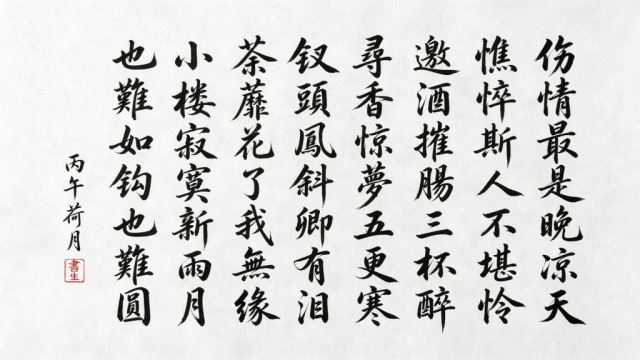 伤情最是晚凉天
憔悴斯人不堪怜
邀酒摧腸三杯醉
尋香惊夢五更寒
钗頭鳳斜卿有泪
荼蘼花了我無缘
小楼寂寞新雨月
也難如钩也難圓
丙午荷月
書生